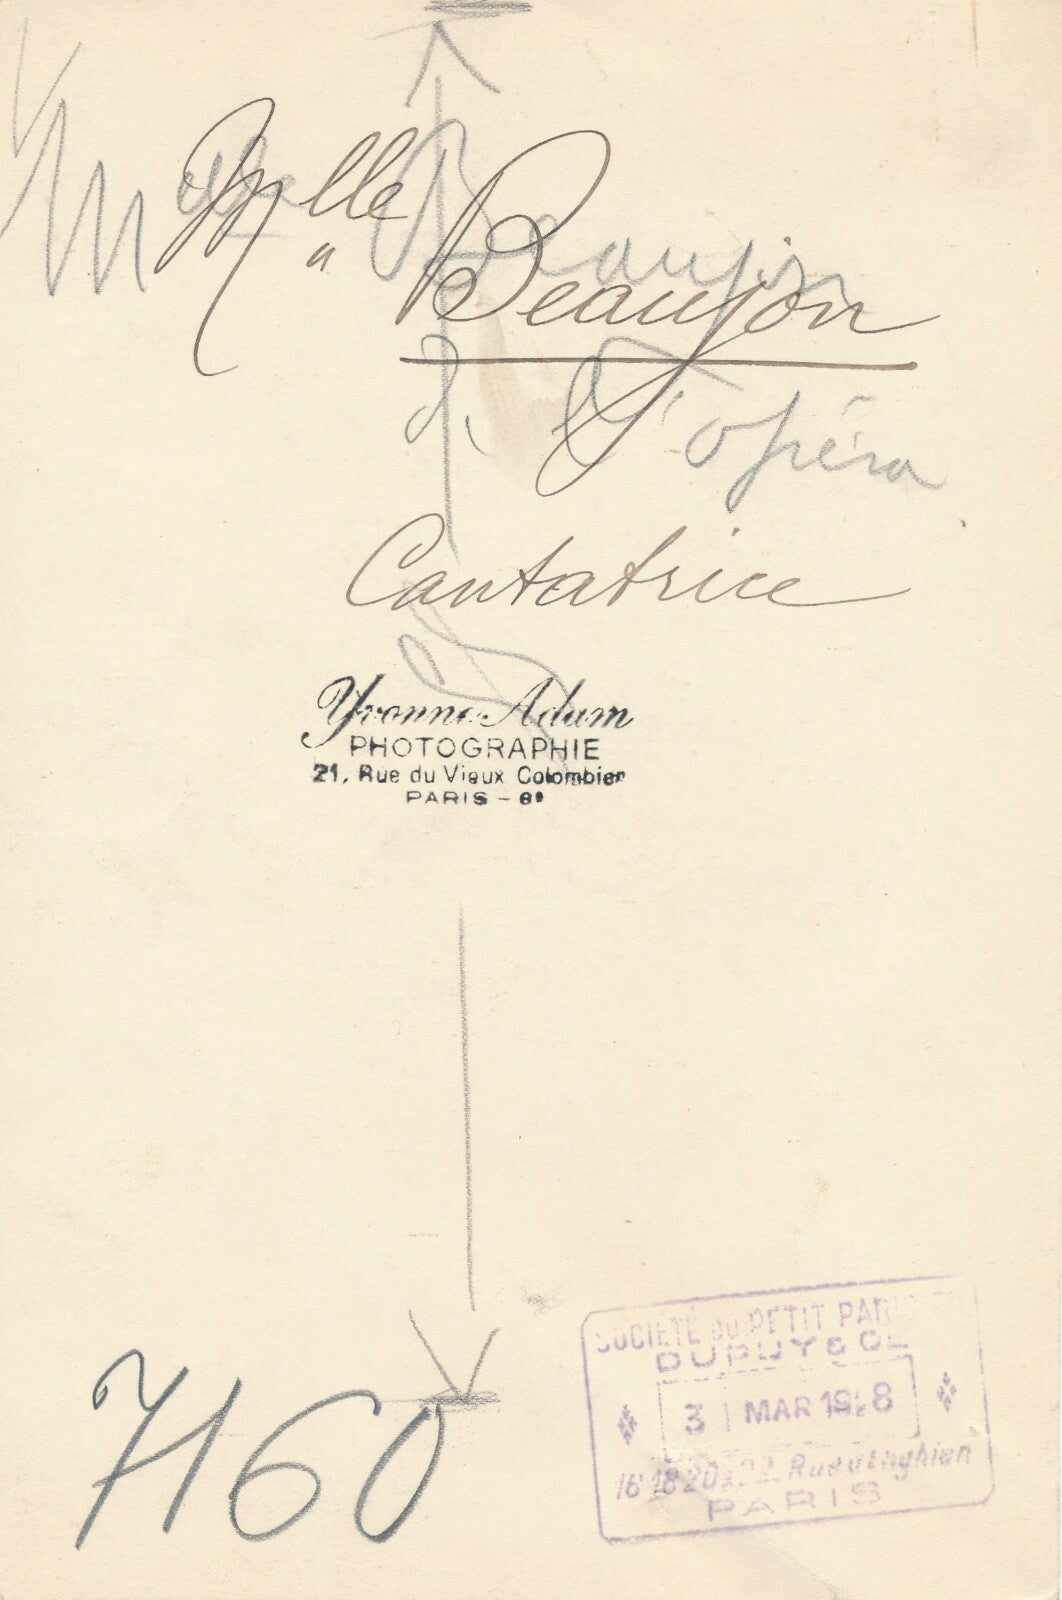 Mlle Beaujon
Mlle Beaujon
d. l'opéra
Cantatrice
Yvonne Adam
PHOTOGRAPHIE
21, Rue du Vieux Colombier
PARIS - 6e
7160
SOCIÉTÉ DU PETIT PARISIEN
DUPUY & CIE
31 MAR 1928
16 18 20 22 Rue d'Enghien
PARIS